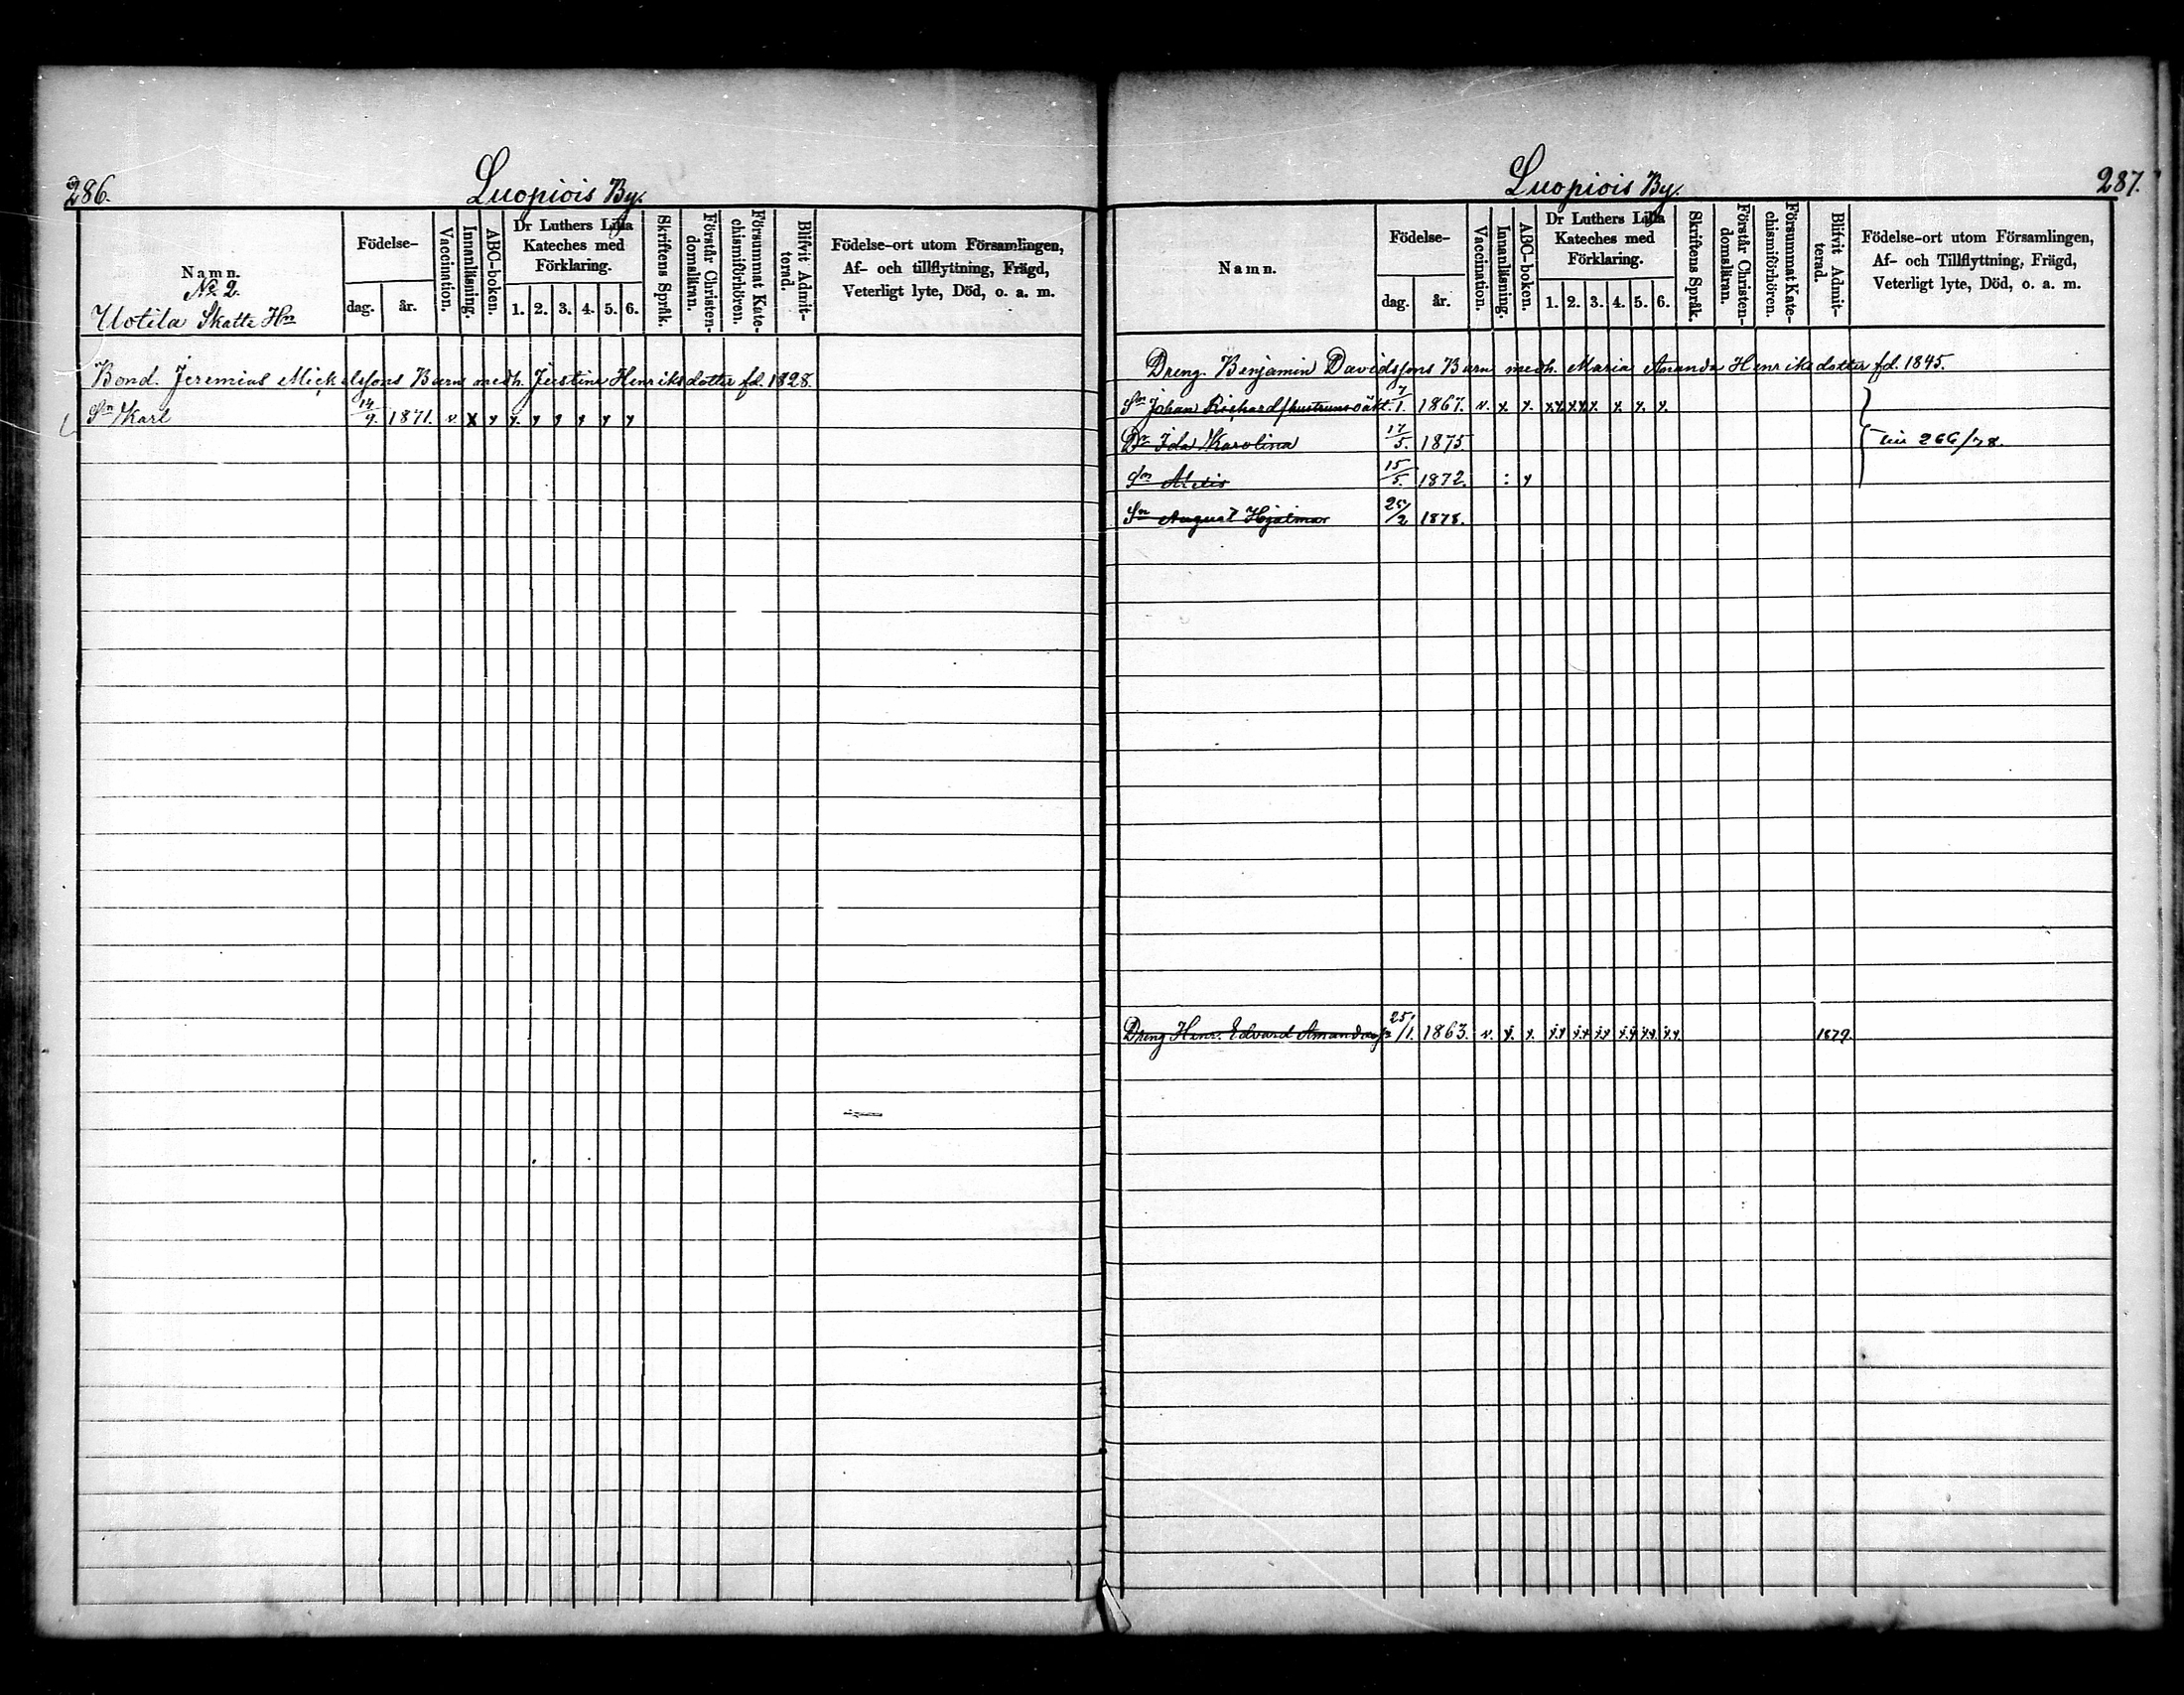 286.
Luopiois By.
Namn.
No 2.
Uotila Skatte Hn
Födelse-
dag. år.
Vaccination.
Innanläsning.
ABC-boken.
Dr Luthers Lilla
Kateches med
Förklaring.
1. 2. 3. 4. 5. 6.
Skriftens Språk.
Förstår Christen-
domsläran.
Försummat Kate-
chismiförhören.
Blifvit Admit-
terad.
Födelse-ort utom Församlingen,
Af- och tillflyttning, Frägd,
Veterligt lyte, Död, o. a. m.
Bond. Jeremias Mickelssons Barn med h. Justina Henriksdotter fd. 1828.
Sn Karl 14/9. 1871. v. x y y. y y y y y
Luopiois By.
287.
Namn.
Födelse-
dag. år.
Vaccination.
Innanläsning.
ABC-boken.
Dr Luthers Lilla
Kateches med
Förklaring.
1. 2. 3. 4. 5. 6.
Skriftens Språk.
Förstår Christen-
domsläran.
Försummat Kate-
chismiförhören.
Blifvit Admit-
terad.
Födelse-ort utom Församlingen,
Af- och Tillflyttning, Frägd,
Veterligt lyte, Död, o. a. m.
Dreng. Benjamin Davidssons Barn med h. Maria Amanda Henriksdotter fd. 1845.
Sn Johan Richard hustruns oäkt. 7/1. 1867. v. y. y. y.y. y.y. y. y. y. y.
Dr Ida Karolina 17/5. 1875.
Sn 15/5. 1872. : y
Sn August Hjalmar 25/2 1878.
266/78.
Dreng Henr. Edvard 25/1. 1863. v. y. y. y.y y.y y.y y.y y.y. y.y. 1879.